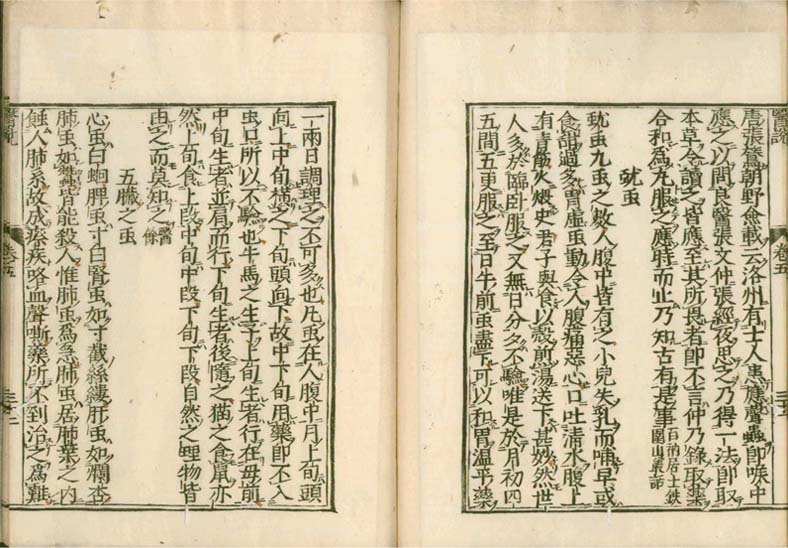 醫說
唐張鷟朝野僉載云洛州有士人患應聲蟲卽喉中
應之以問良醫張文仲張經夜思之乃得一法卽取
本草令讀之皆應至其所畏者卽不言仲乃錄取藥
合和爲丸服之應時而止乃知古有是事百衲居士鉄圍山叢話
蚘虫
蚘虫九虫之数人腹中皆有之小兒失乳而哺早或
食甜過多胃虛虫動令人腹痛惡心口吐清水腹上
有青筋火煨史君子與食以殼煎湯送下甚妙然世
人多於臨卧服之又無日分多不驗唯是於月初四
五間五更服之至日午前虫盡下可以和胃温平藥
一兩日調理之不可多也凡虫在人腹中月上旬頭
向上中旬橫之下旬頭向下故中下旬用藥卽不入
虫口所以不驗也牛馬之生子上旬生者行在母前
中旬生者並肩而行下旬生者後隨之猫之食鼠亦
然上旬食上段中旬中段下旬下段自然之理物皆
由之而莫知之醫餘
五臟之虫
心虫曰蛔脾虫寸白腎虫如寸截絲縷肝虫如爛杏
肺虫如蠶皆能殺人惟肺虫爲急肺虫居肺葉之内
蝕人肺系故成瘵疾咯血聲嘶藥所不到治之爲難
醫說
卷五